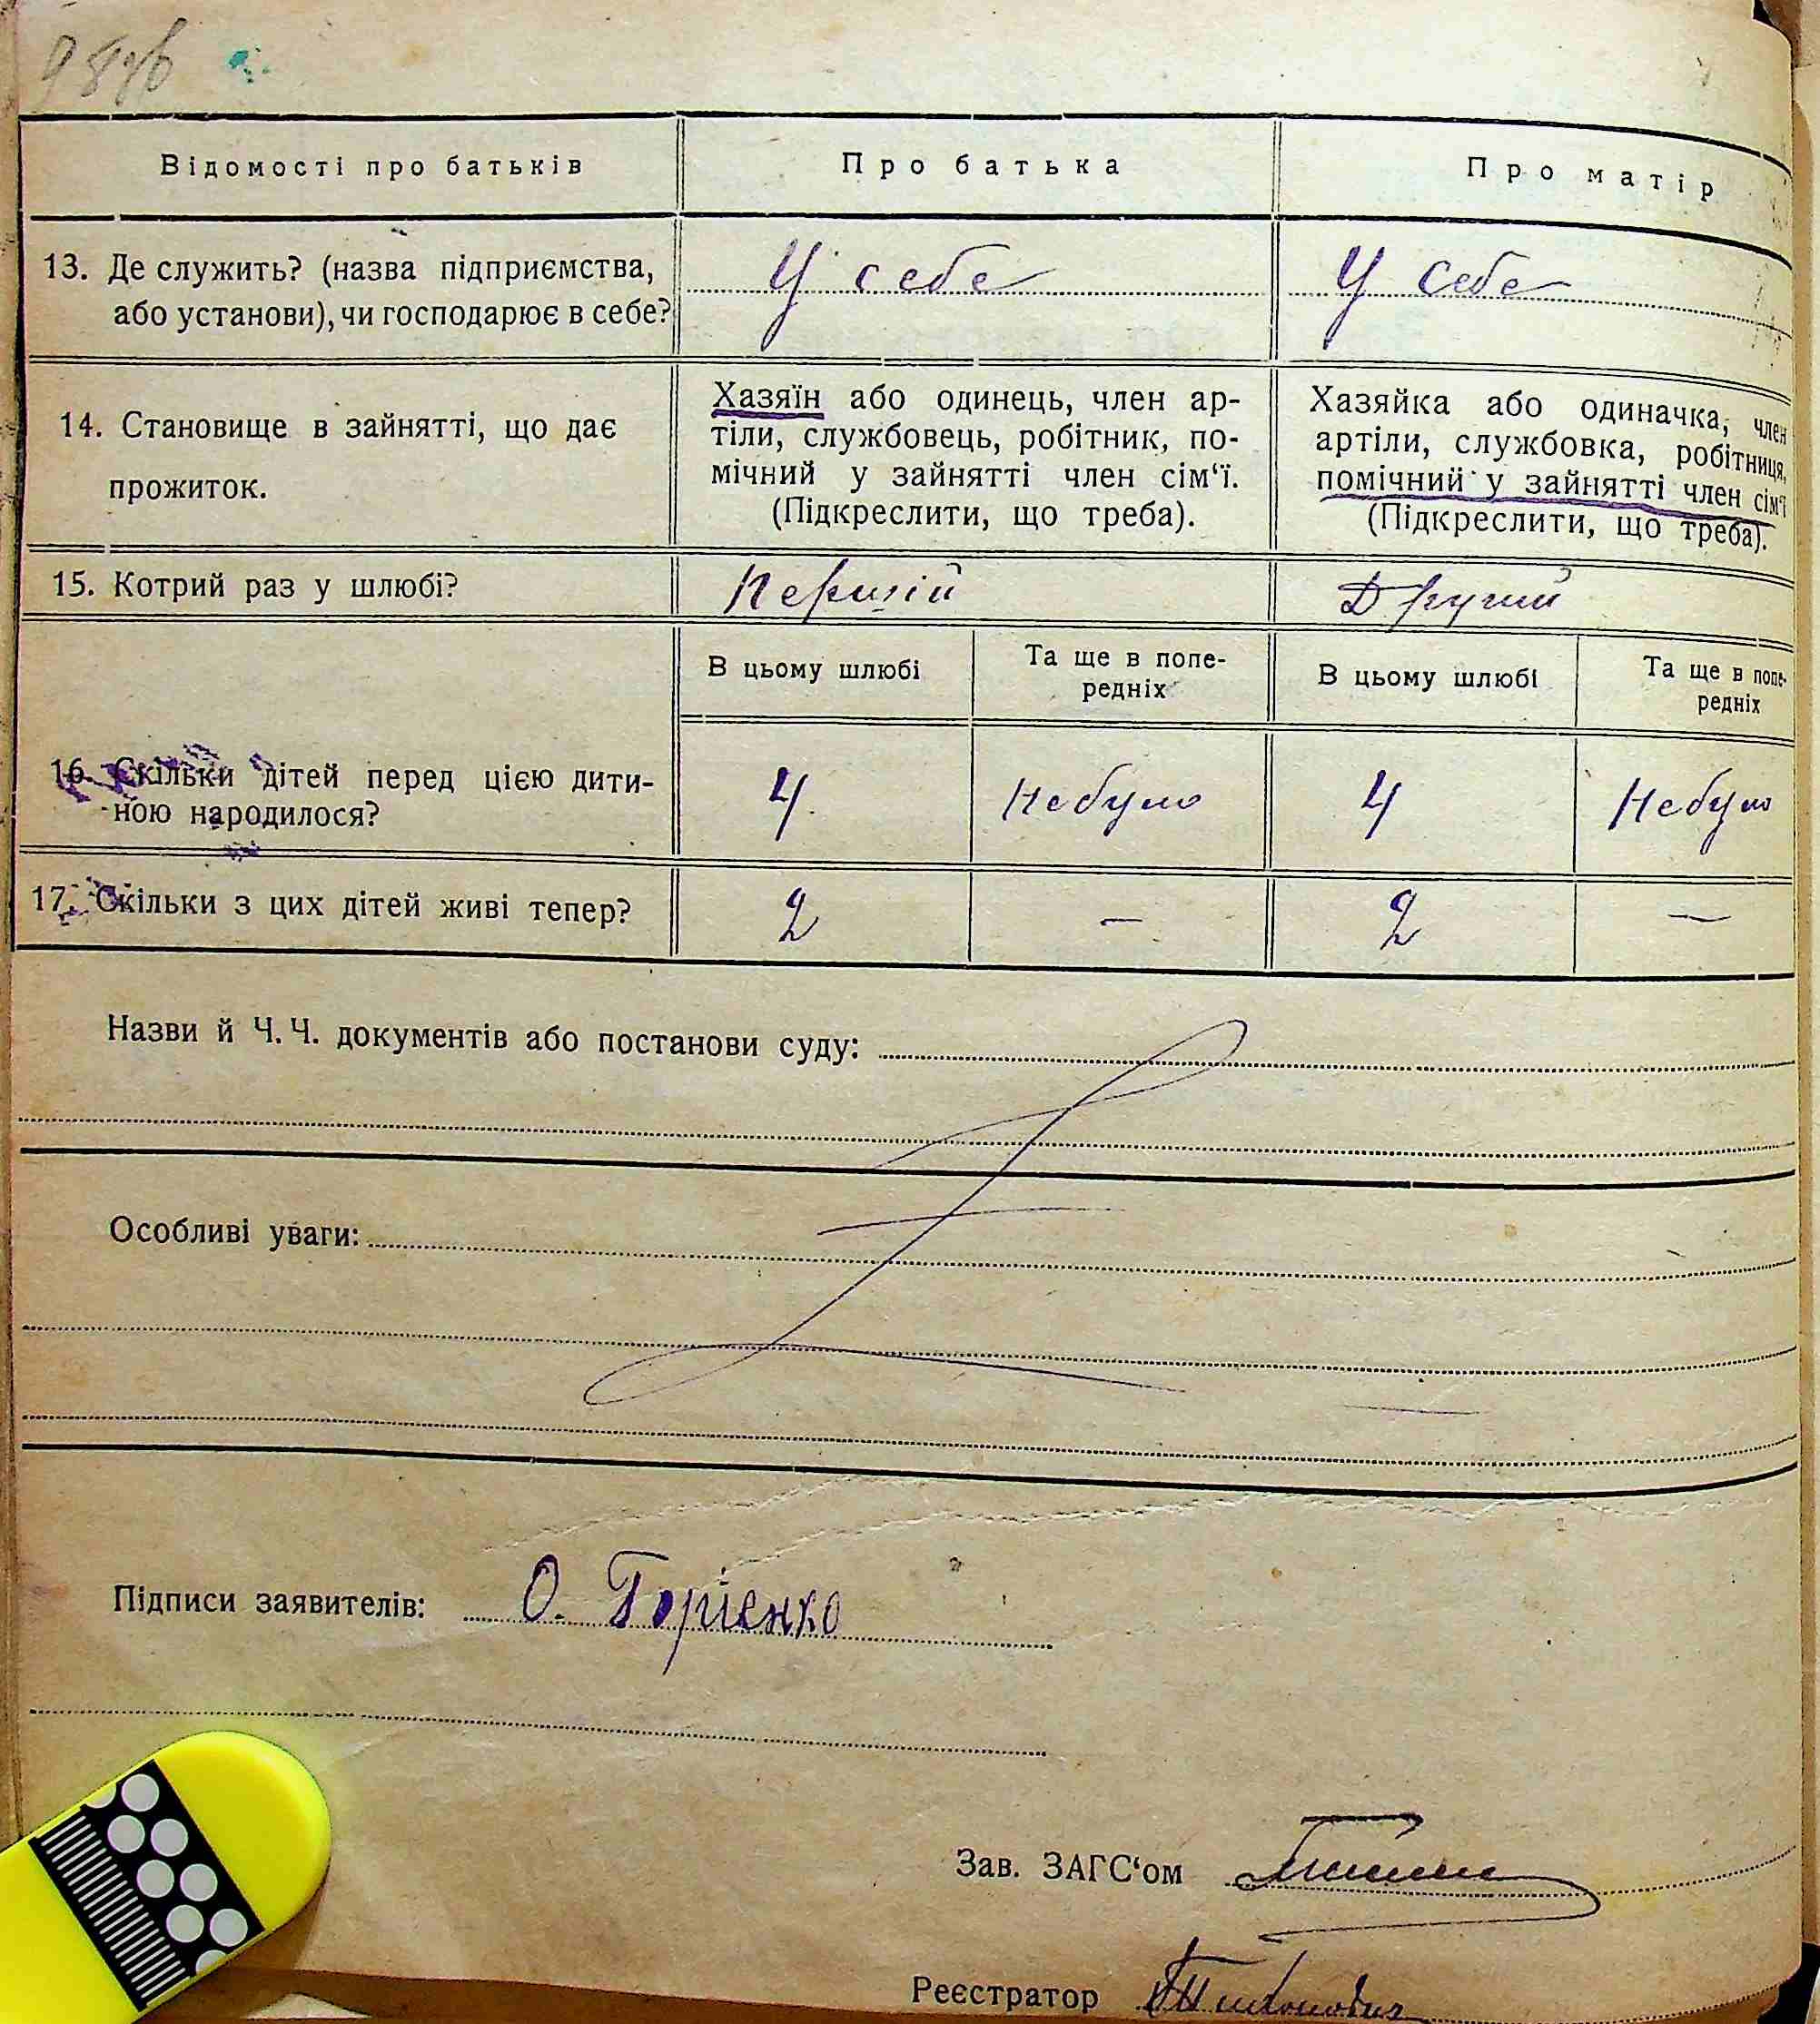 98зв
Відомості про батьків
Про батька
Про матір
13. Де служить? (назва підприємства,
або установи), чи господарює в себе?
У себе
У себе
14. Становище в зайнятті, що дає
прожиток.
Хазяїн або одинець, член ар-
тіли, службовець, робітник, по-
мічний у зайнятті член сім‘ї.
(Підкреслити, що треба).
Хазяйка або одиначка, член
артіли, службовка, робітниця,
помічний у зайнятті член сім‘ї
(Підкреслити, що треба).
15. Котрий раз у шлюбі?
Перший
Другий
В цьому шлюбі
Та ще в попе-
редніх
В цьому шлюбі
Та ще в попе-
редніх
16. Скільки дітей перед цією дити-
ною народилося?
4
Небуло
4
Небуло
17. Скільки з цих дітей живі тепер?
2
—
2
—
Назви й Ч. Ч. документів або постанови суду:
Особливі уваги:
Підписи заявителів: О. Горієнко
Зав. ЗАГС‘ом
Реєстратор